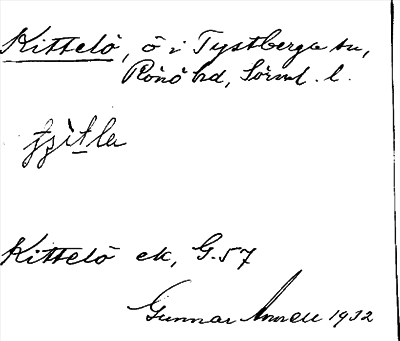 Kittelö, ö i Tystberga sn,
Rönö hd, Sörml. l.
Kittelö ek, G.57
Gunnar 1932